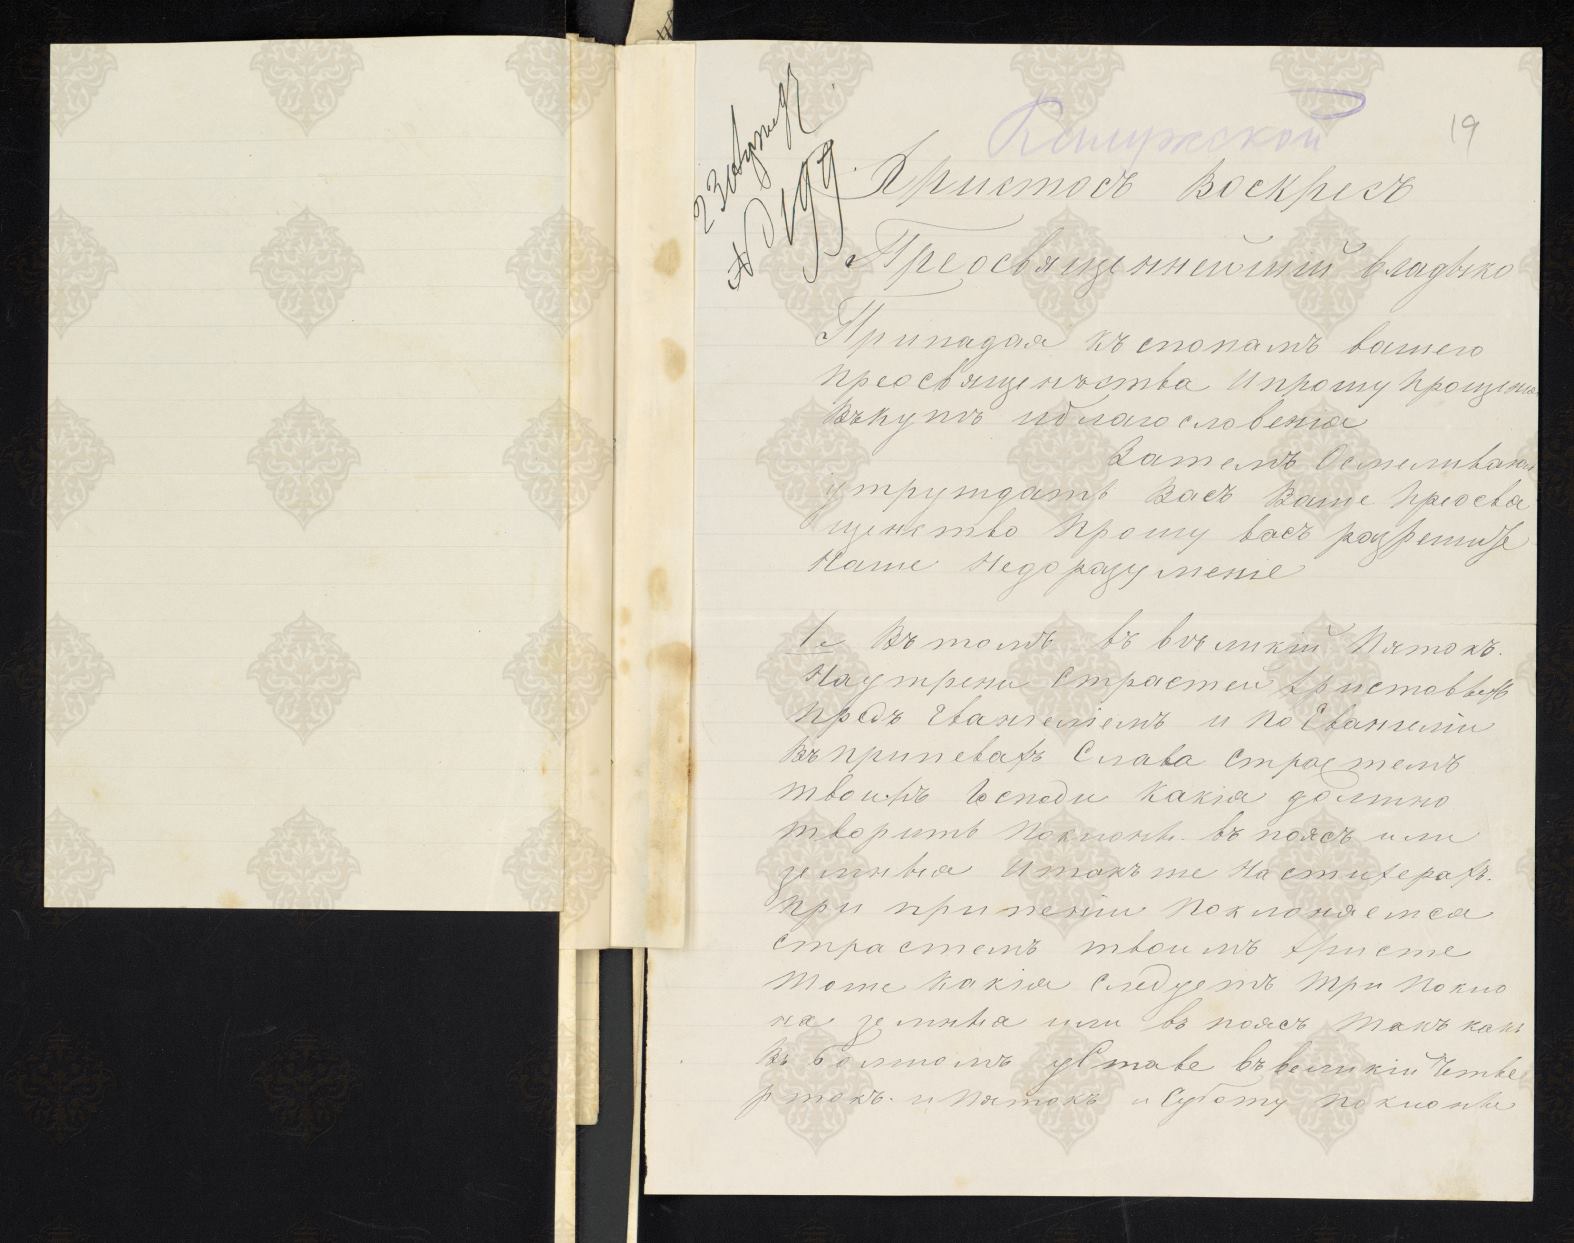 Калужской
19
№ 199
Христосъ Воскресъ
Преосвященнейший владыко
Припадая къ стопамъ вашего
преосвященъства И прошу прощения
Въкупѣ иблагословения
Затемъ Осмеливаюсь
утруждать Васъ Ваше преосвя
щенство прошу васъ разрешить
Наше Недоразумение
1е Въ томъ въ великій Пятокъ.
На утрени Страстей Христовыхъ
предъ Евангелиемъ и по Евангелии
Въ припевахъ Слава Страстемъ
твоимъ Господи какия должно
творить поклоны. въ поясъ или
земныя И такъ же На стихерахъ.
при припении Поклоняемся
Страстемъ твоимъ Христе
тоже какия следуетъ три покло
на земныя или въ поясъ такъ какъ
Въ болшомъ уставе въ великий Четве
ртокъ. и пятокъ и Суботу поклоны